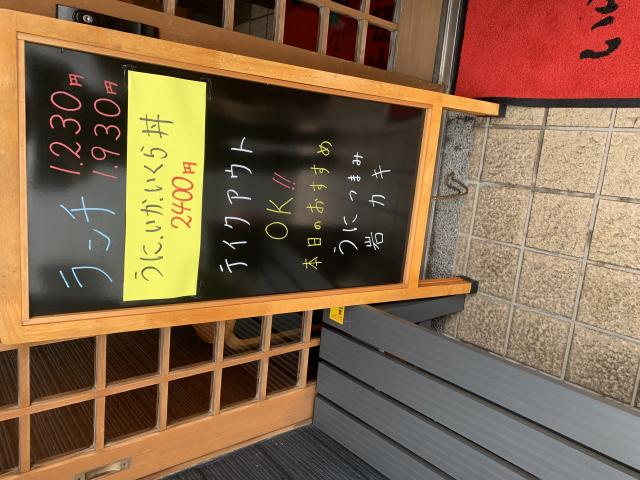 ランチ 1.230円
1.930円
うに.いか.いくら丼
2400円
テイクアウト
OK!!
本日のおすすめ
うにつまみ
岩カキ